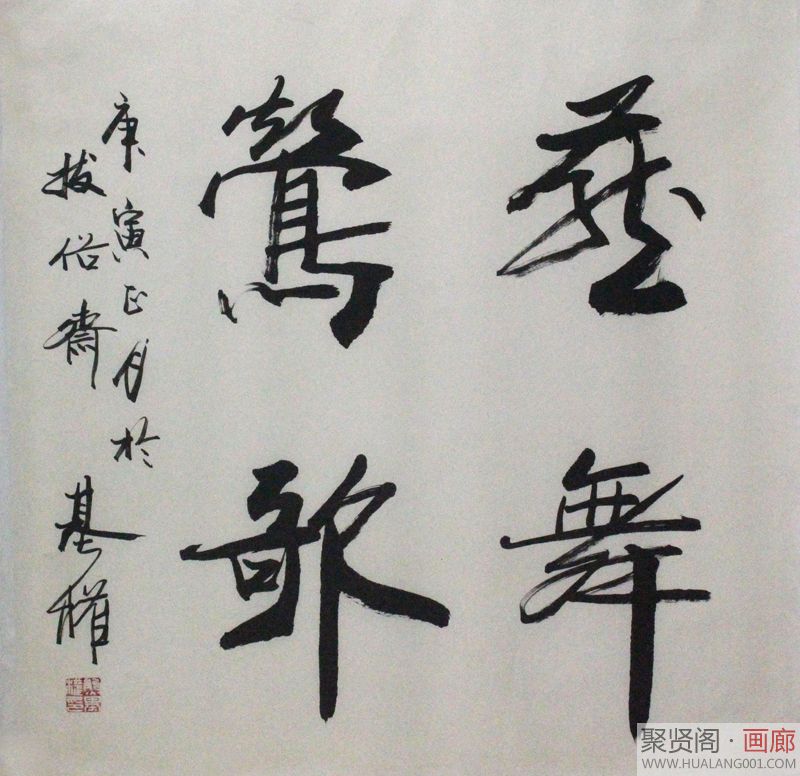 燕舞
鶯歌
庚寅正月於
拔俗齋 基權
聚贤阁·画廊
WWW.HUALANG001.COM